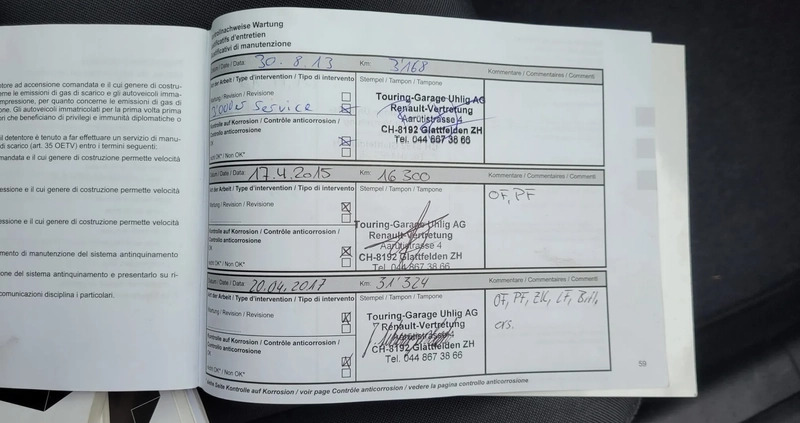 tore ad accensione comandata e il cui genere di costru-
me le emissioni di gas di scarico e gli autoveicoli imma-
mpressione, per quanto concerne le emissioni di gas di
one. Gli autoveicoli immatricolati per la prima volta prima
ri che beneficiano di privilegi e immunità diplomatiche o
il detentore è tenuto a far effettuare un servizio di manu-
di scarico (art. 35 OETV) entro i termini seguenti:
mandata e il cui genere di costruzione permette velocità
essione e il cui genere di costruzione permette velocità
essione e il cui genere di costruzione permette velocità
mento di manutenzione del sistema antinquinamento
one del sistema antinquinamento e presentarlo su ri-
comunicazioni disciplina i particolari.
trollnachweise Wartung
tificatifs d'entretien
tificativi di manutenzione
Date / Data: 30.8.13 Km: 3'168 Kommentare / Commentaires / Commenti
der Arbeit / Type d'intervention / Tipo di intervento Stempel / Tampon / Tampone
Wartung / Revision / Revisione
Service
Touring-Garage Uhlig AG
Renault-Vertretung
Aarütistrasse 4
CH-8192 Glattfelden ZH
Tel. 044 867 38 66
Kontrolle auf Korrosion / Contrôle anticorrosion /
Controllo anticorrosione
OK*
Nicht OK* / Non OK*
Datum / Date / Data: 17.4.2015 Km: 16'300 Kommentare / Commentaires / Commenti
Art der Arbeit / Type d'intervention / Tipo di intervento Stempel / Tampon / Tampone
Wartung / Revision / Revisione
OF, PF
Touring-Garage Uhlig AG
Renault-Vertretung
Aarütistrasse 4
CH-8192 Glattfelden ZH
Tel. 044 867 38 66
Kontrolle auf Korrosion / Contrôle anticorrosion /
Controllo anticorrosione
OK*
Nicht OK* / Non OK*
Datum / Date / Data: 20.04.2017 Km: 31'324 Kommentare / Commentaires / Commenti
Art der Arbeit / Type d'intervention / Tipo di intervento Stempel / Tampon / Tampone
Wartung / Revision / Revisione
OF, PF, ZK, LF,
Touring-Garage Uhlig AG
Renault-Vertretung
Aarütistrasse 4
CH-8192 Glattfelden ZH
Tel. 044 867 38 66
Kontrolle auf Korrosion / Contrôle anticorrosion /
Controllo anticorrosione
OK*
Nicht OK* / Non OK*
Siehe Seite Kontrolle auf Korrosion / voir page Contrôle anticorrosion / vedere la pagina controllo anticorrosione
59